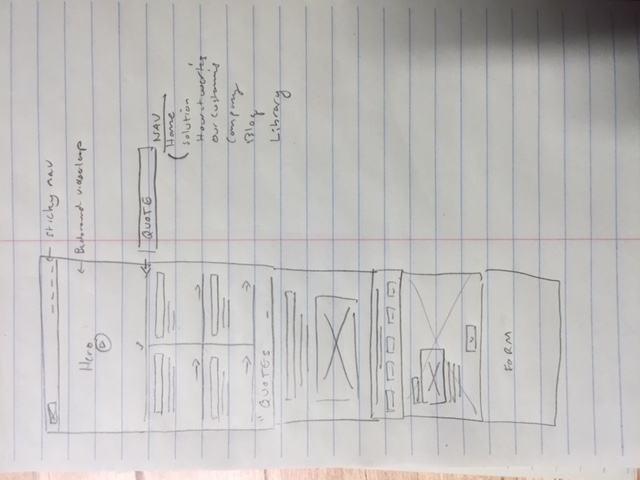 sticky nav
Hero
Background video loop
QUOTE
NAV
Home
Solution
How it works
Our Customers
Company
Blog
Library
" QUOTES
FORM